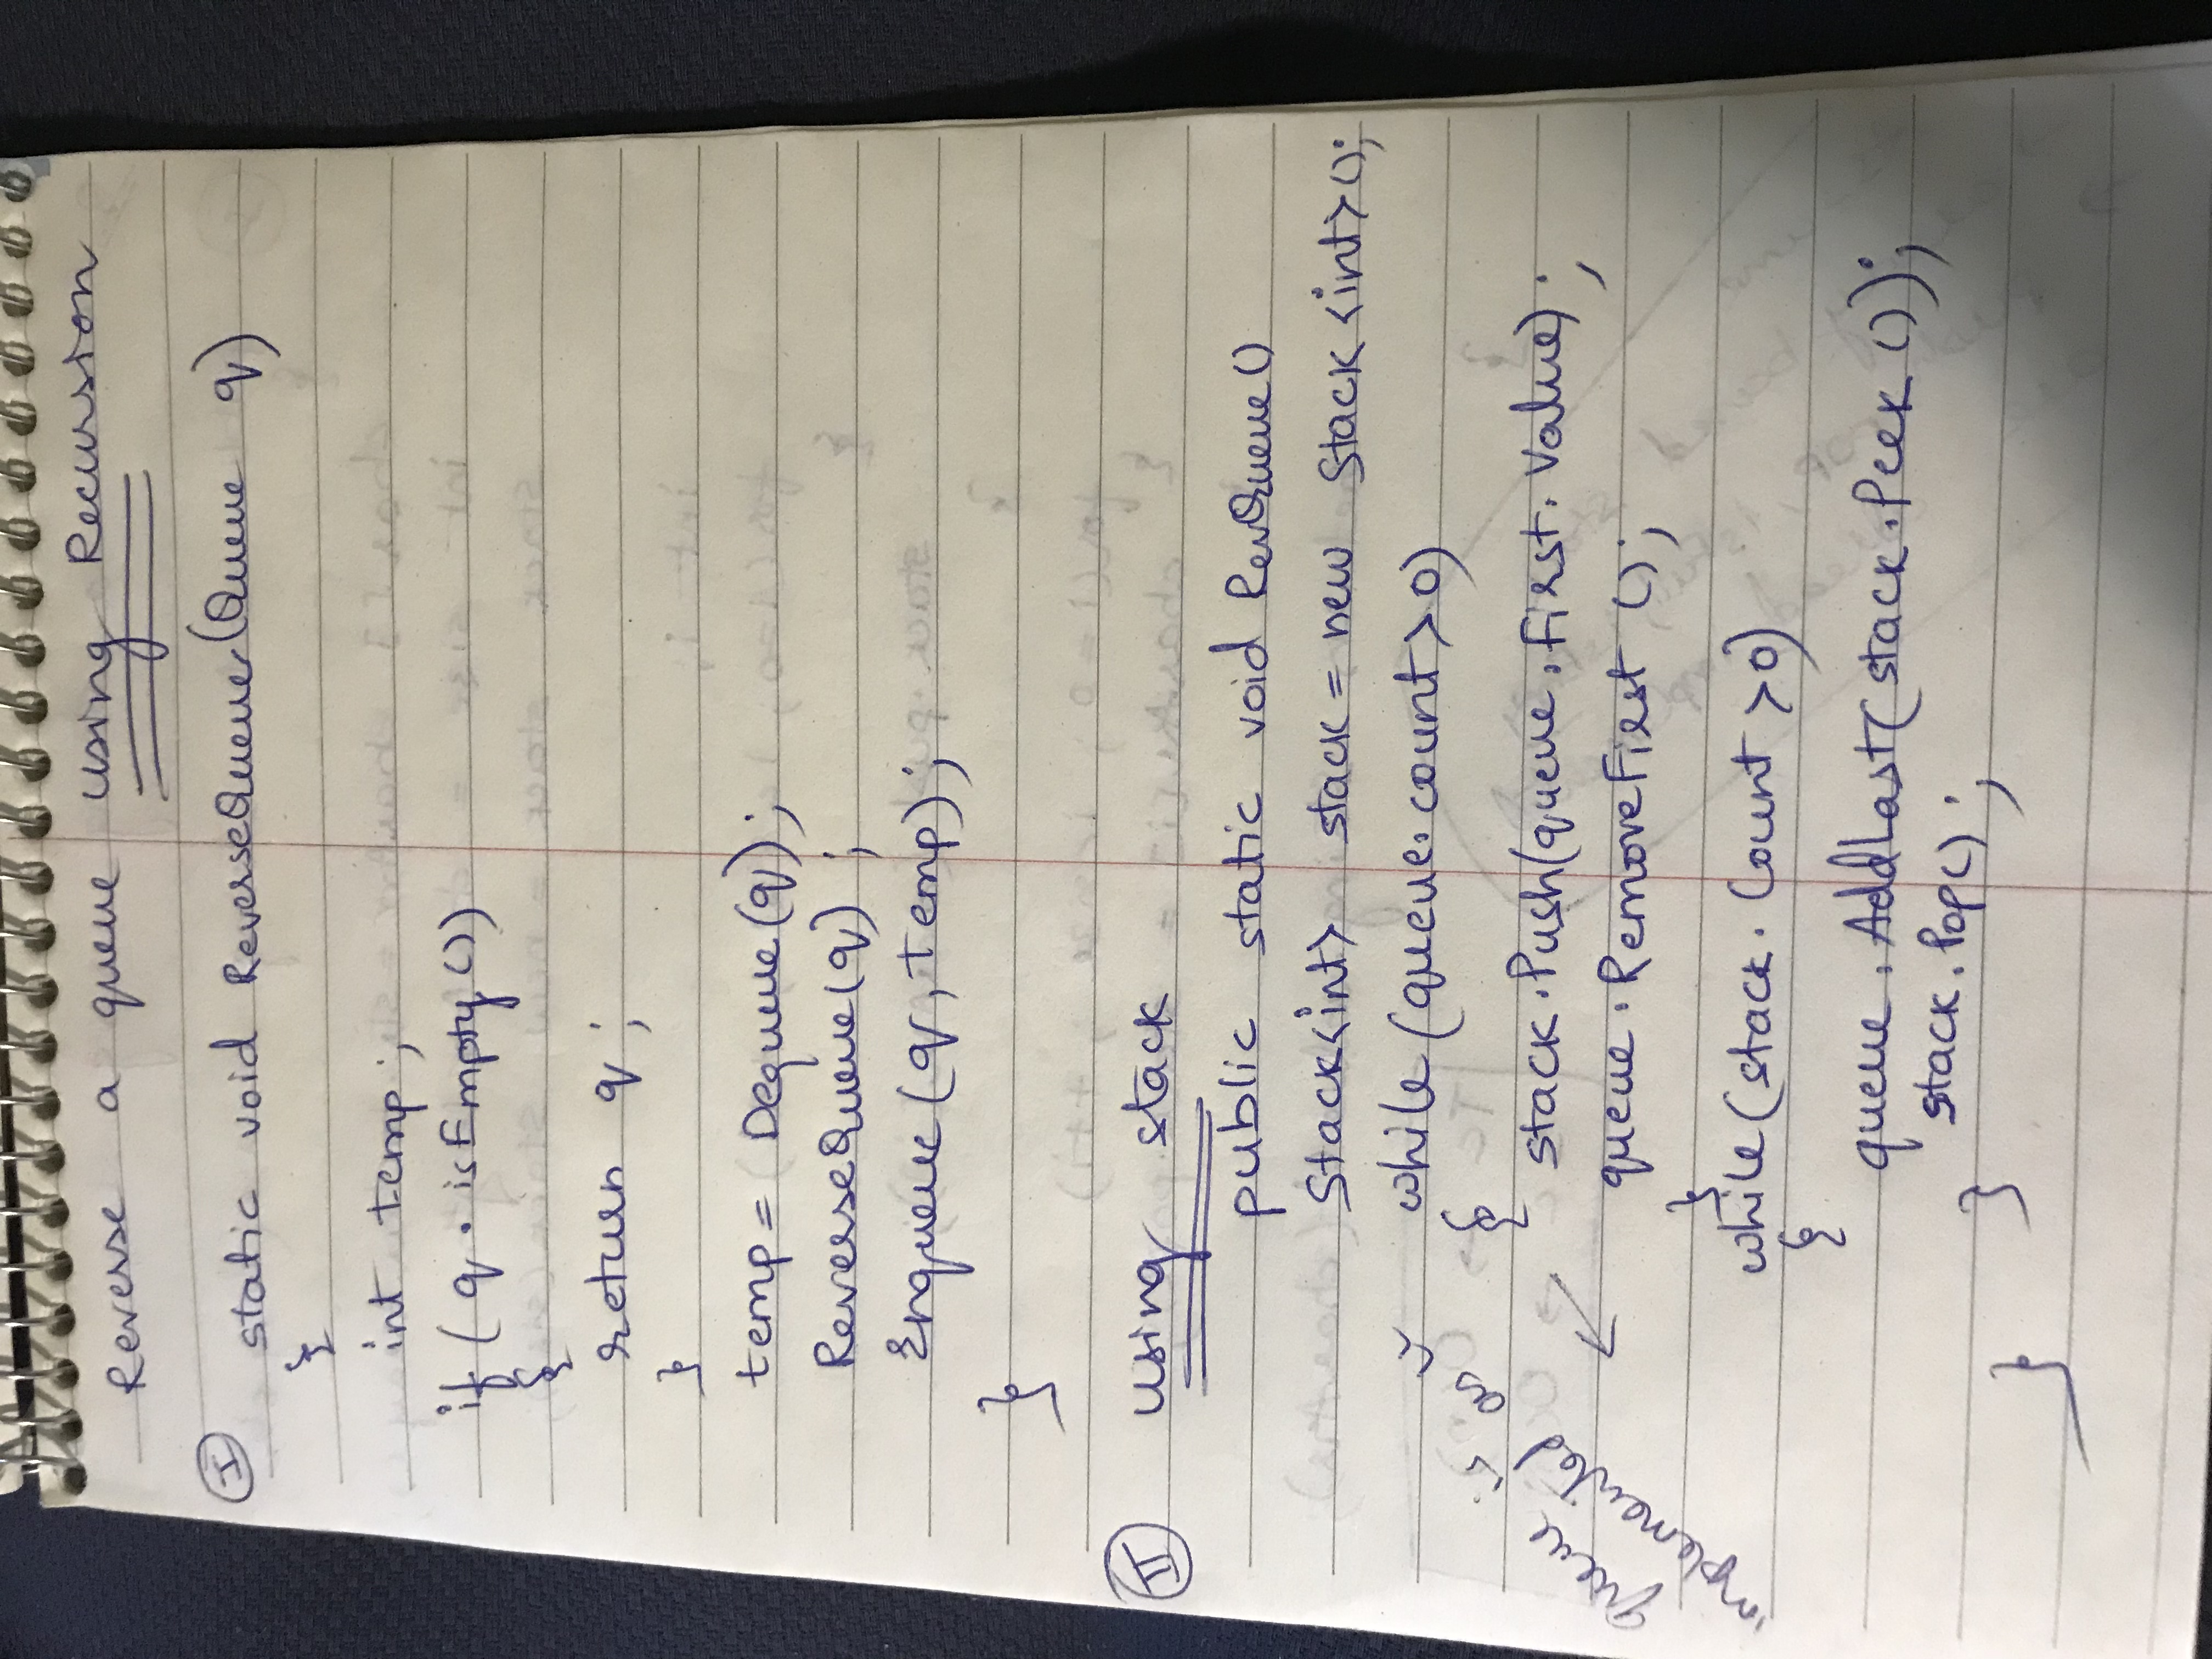 Reverse a queue using Recursion
I
static void ReverseQueue(Queue q)
{
int temp;
if (q.isEmpty())
{
return q;
}
temp = Dequeue(q);
ReverseQueue(q);
Enqueue(q, temp);
}
II using stack
public static void RevQueue()
Stack<int> stack = new Stack<int>();
while(queue.count>0)
{
stack.Push(queue.First.Value);
queue.RemoveFirst();
}
queue is
implemented as LL
while(stack.Count >0)
{
queue.AddLast(stack.Peek());
stack.Pop();
}
}